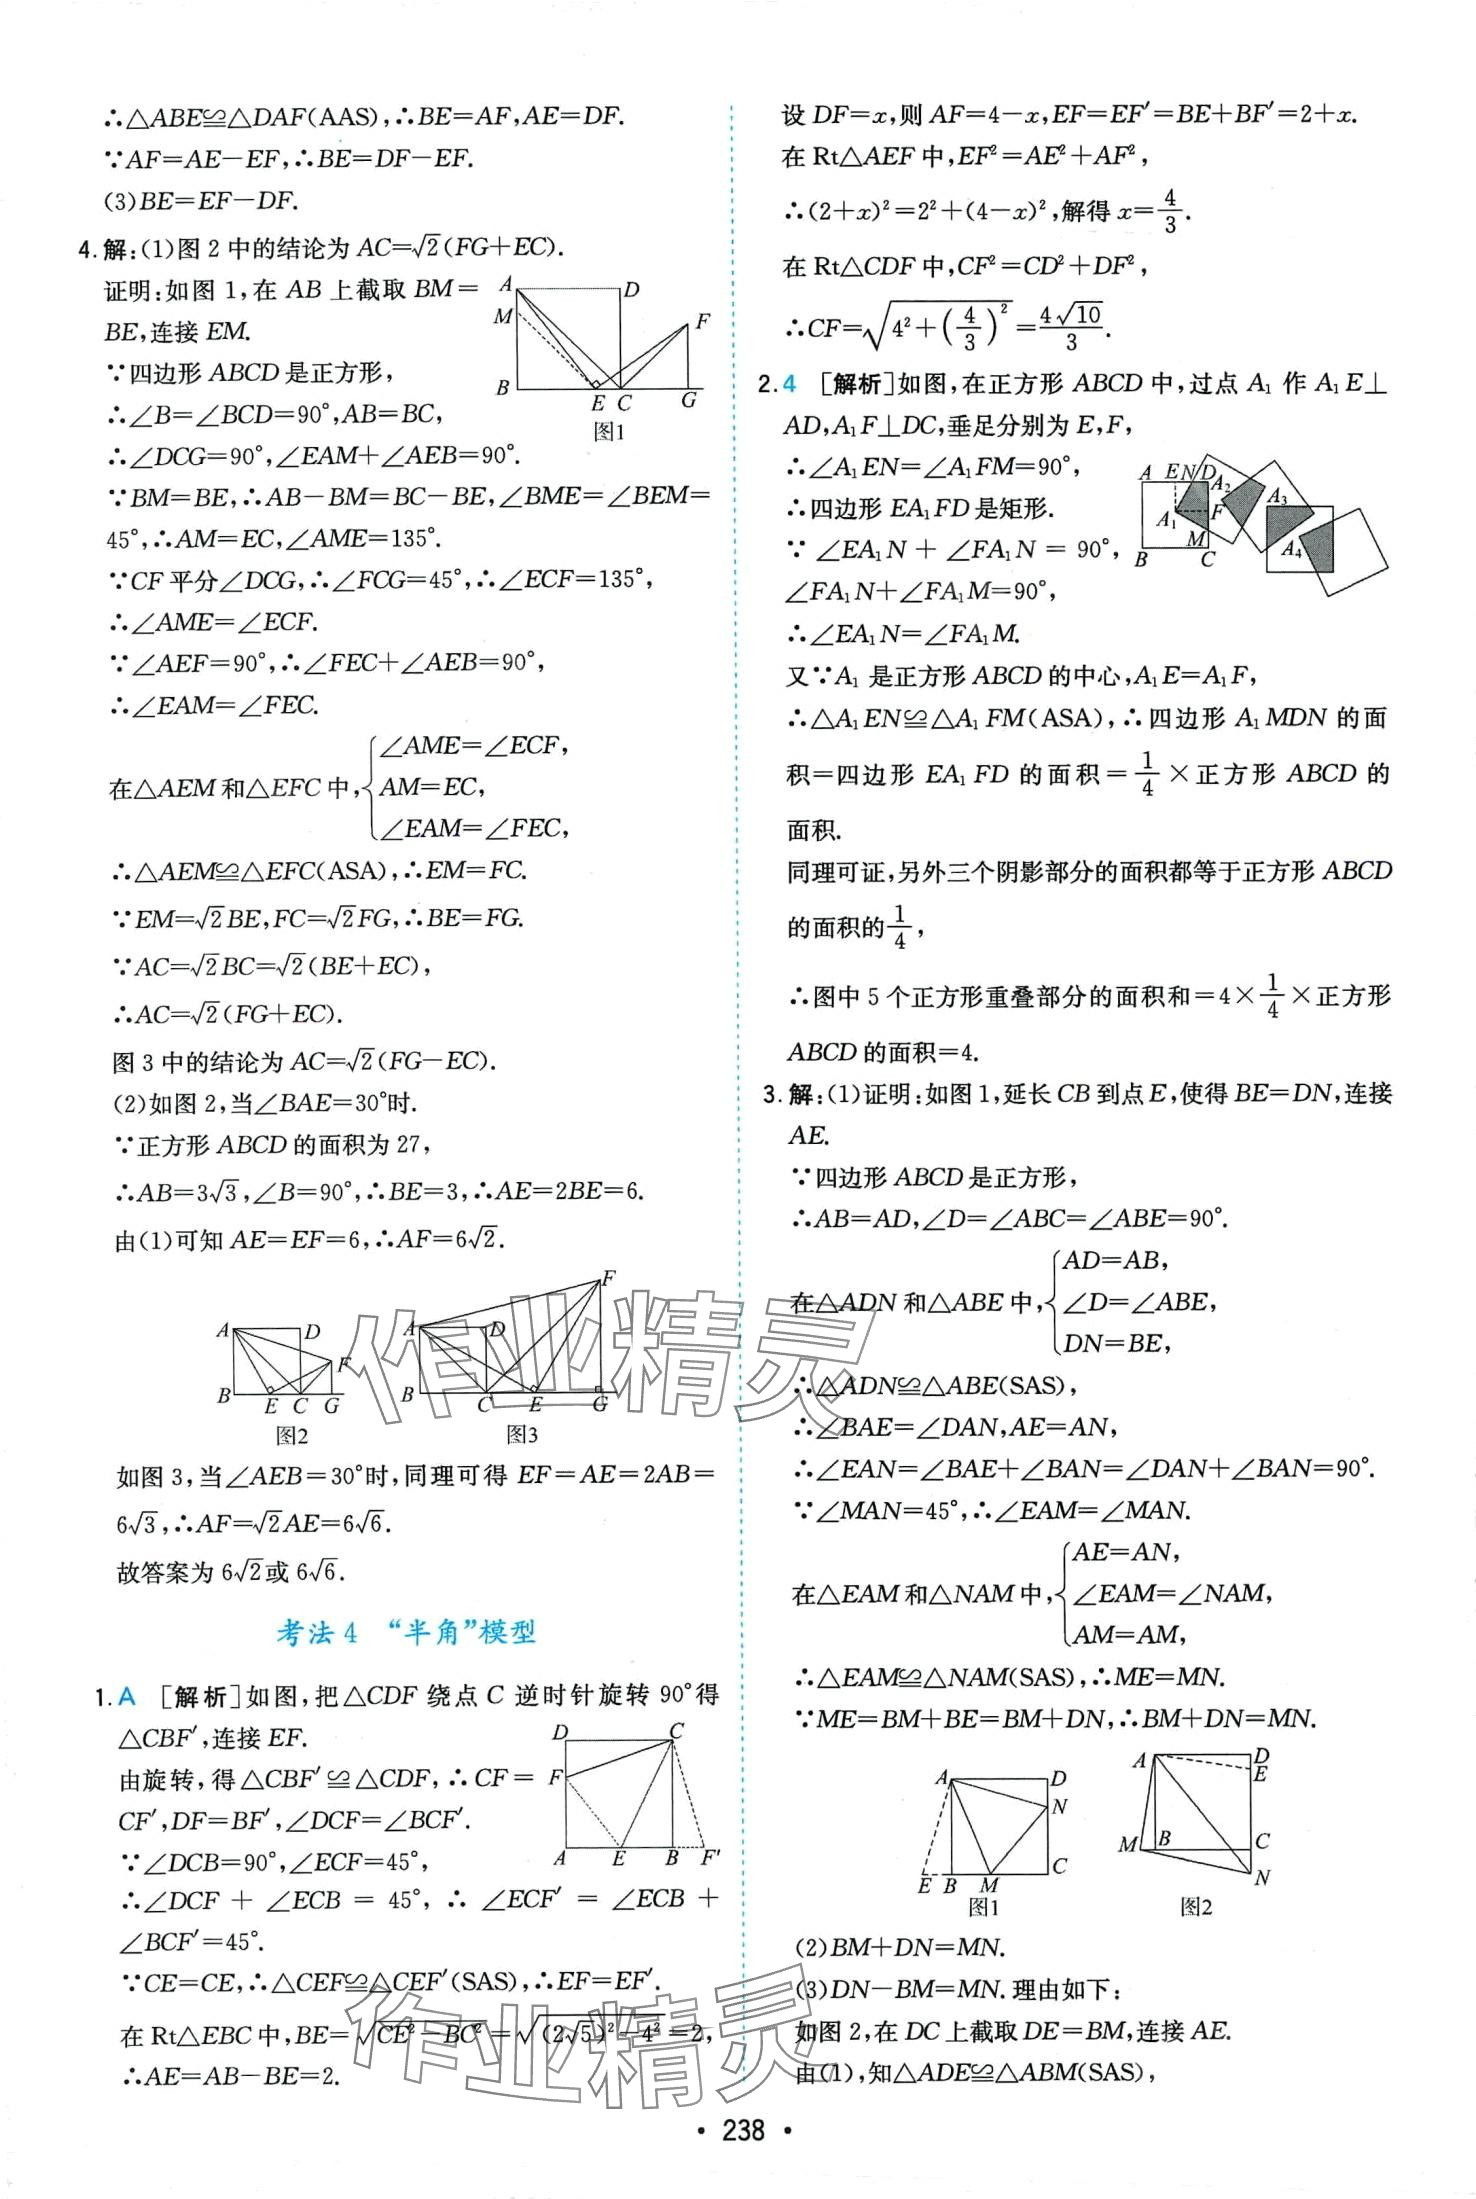 ∴△ABE≌△DAF(AAS),∴BE=AF,AE=DF.
∵AF=AE−EF,∴BE=DF−EF.
(3)BE=EF−DF.
4.解:(1)图2中的结论为AC=√2(FG+EC).
证明:如图1,在AB上截取BM=
BE,连接EM.
∵四边形ABCD是正方形,
∴∠B=∠BCD=90°,AB=BC,
A D M F B E C G
图1
∴∠DCG=90°,∠EAM+∠AEB=90°.
∵BM=BE,∴AB−BM=BC−BE,∠BME=∠BEM=
45°,∴AM=EC,∠AME=135°.
∵CF平分∠DCG,∴∠FCG=45°,∴∠ECF=135°,
∴∠AME=∠ECF.
∵∠AEF=90°,∴∠FEC+∠AEB=90°,
∴∠EAM=∠FEC.
在△AEM和△EFC中,{∠AME=∠ECF,
AM=EC,
∠EAM=∠FEC,
∴△AEM≌△EFC(ASA),∴EM=FC.
∵EM=√2BE,FC=√2FG,∴BE=FG.
∵AC=√2BC=√2(BE+EC),
∴AC=√2(FG+EC).
图3中的结论为AC=√2(FG−EC).
(2)如图2,当∠BAE=30°时.
∵正方形ABCD的面积为27,
∴AB=3√3,∠B=90°,∴BE=3,∴AE=2BE=6.
由(1)可知AE=EF=6,∴AF=6√2.
A D F B E C G
图2
A D F B C E G
图3
如图3,当∠AEB=30°时,同理可得EF=AE=2AB=
6√3,∴AF=√2AE=6√6.
故答案为6√2或6√6.
考法4 “半角”模型
1.A [解析]如图,把△CDF绕点C逆时针旋转90°得
△CBF′,连接EF.
由旋转,得△CBF′≌△CDF,∴CF=
CF′,DF=BF′,∠DCF=∠BCF′.
∵∠DCB=90°,∠ECF=45°,
D C F A E B F′
∴∠DCF+∠ECB=45°,∴∠ECF′=∠ECB+
∠BCF′=45°.
∵CE=CE,∴△CEF≌△CEF′(SAS),∴EF=EF′.
在Rt△EBC中,BE=√(CE²−BC²)=√((2√5)²−4²)=2,
∴AE=AB−BE=2.
设DF=x,则AF=4−x,EF=EF′=BE+BF′=2+x.
在Rt△AEF中,EF²=AE²+AF²,
∴(2+x)²=2²+(4−x)²,解得x=4/3.
在Rt△CDF中,CF²=CD²+DF²,
∴CF=√(4²+(4/3)²)=4√10/3.
2.4 [解析]如图,在正方形ABCD中,过点A₁作A₁E⊥
AD,A₁F⊥DC,垂足分别为E,F,
∴∠A₁EN=∠A₁FM=90°,
∴四边形EA₁FD是矩形.
∵∠EA₁N+∠FA₁N=90°,
∠FA₁N+∠FA₁M=90°,
A E N D A₂ A₃ A₁ F M A₄ B C
∴∠EA₁N=∠FA₁M.
又∵A₁是正方形ABCD的中心,A₁E=A₁F,
∴△A₁EN≌△A₁FM(ASA),∴四边形A₁MDN的面
积=四边形EA₁FD的面积=1/4×正方形ABCD的
面积.
同理可证,另外三个阴影部分的面积都等于正方形ABCD
的面积的1/4,
∴图中5个正方形重叠部分的面积和=4×1/4×正方形
ABCD的面积=4.
3.解:(1)证明:如图1,延长CB到点E,使得BE=DN,连接
AE.
∵四边形ABCD是正方形,
∴AB=AD,∠D=∠ABC=∠ABE=90°.
在△ADN和△ABE中,{AD=AB,
∠D=∠ABE,
DN=BE,
∴△ADN≌△ABE(SAS),
∴∠BAE=∠DAN,AE=AN,
∴∠EAN=∠BAE+∠BAN=∠DAN+∠BAN=90°.
∵∠MAN=45°,∴∠EAM=∠MAN.
在△EAM和△NAM中,{AE=AN,
∠EAM=∠NAM,
AM=AM,
∴△EAM≌△NAM(SAS),∴ME=MN.
∵ME=BM+BE=BM+DN,∴BM+DN=MN.
A D N C E B M
图1
A D E M B C N
图2
(2)BM+DN=MN.
(3)DN−BM=MN.理由如下:
如图2,在DC上截取DE=BM,连接AE.
由(1),知△ADE≌△ABM(SAS),
· 238 ·
作业精灵
作业精灵